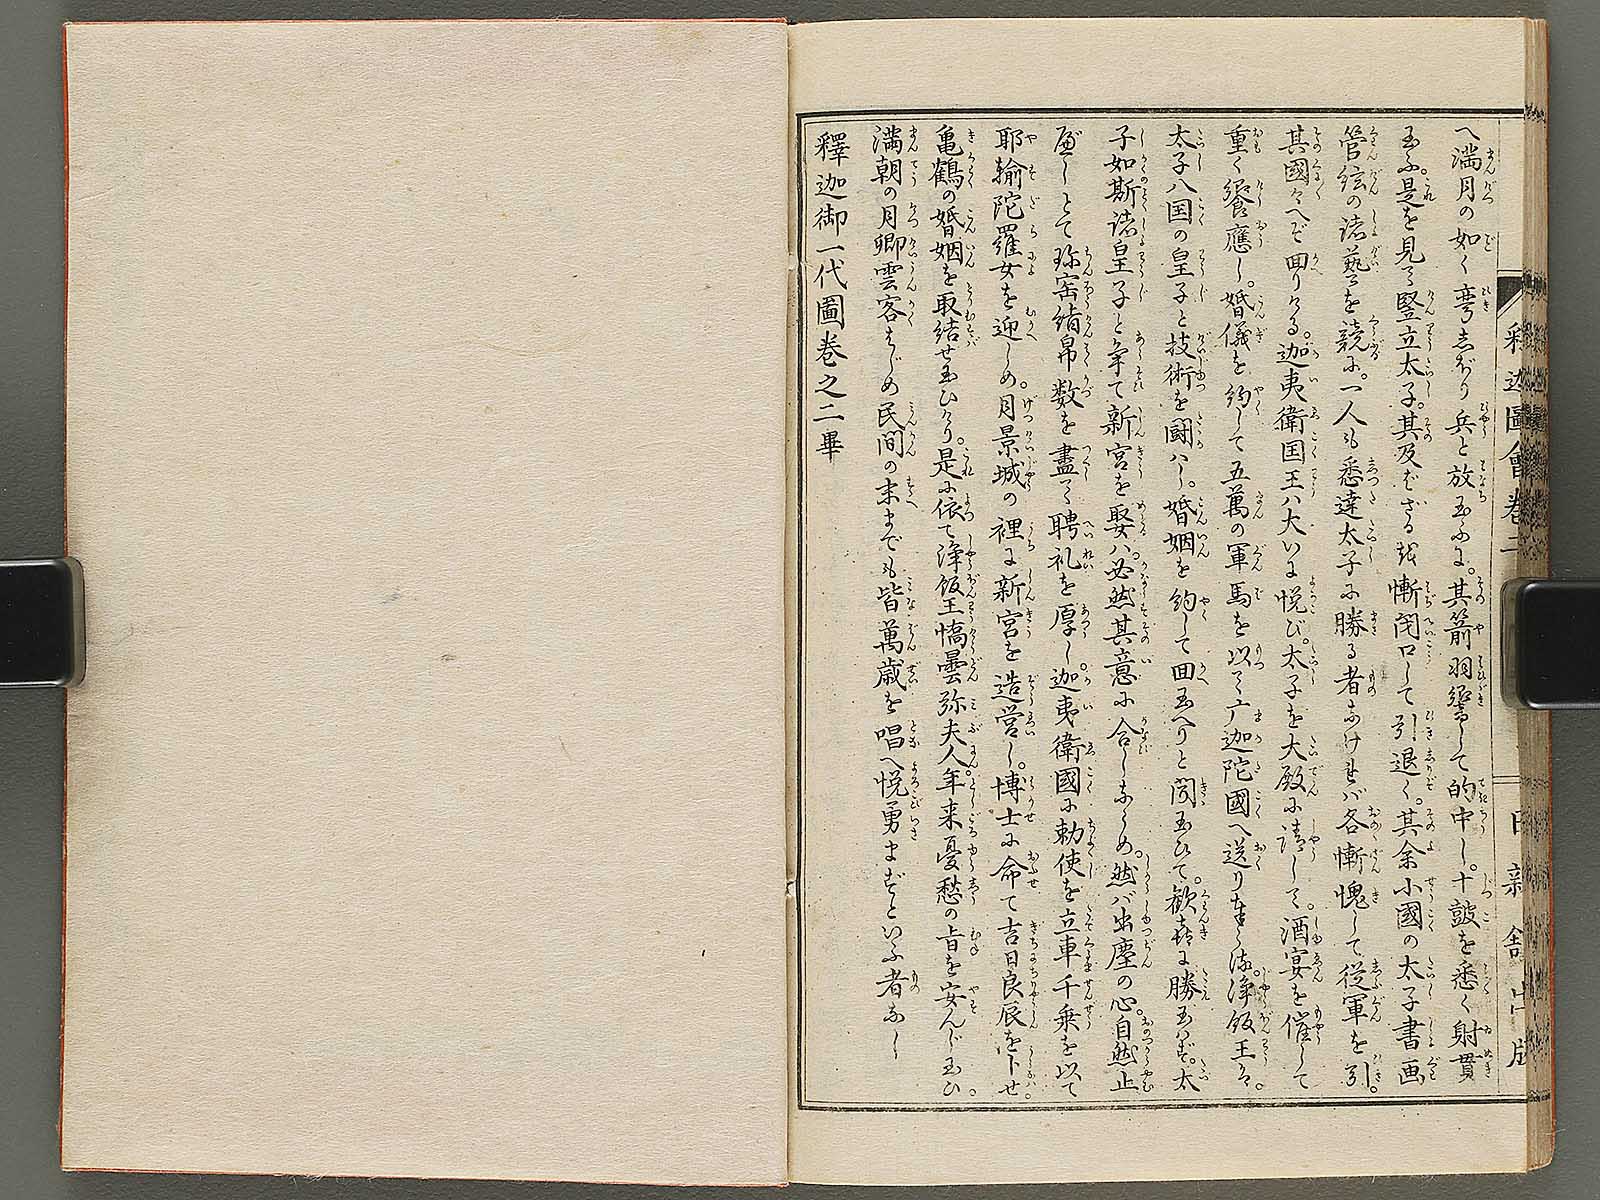 へ満月の如く弯しぼり兵と放玉ふに。其箭羽響して的中し。十皷を悉く射貫
玉ふ。是を見て竪立太子。其及ばざるを慚閉口して引退く。其余小國の太子書画
管絃の諸藝を競に。一人も悉達太子に勝る者なければ各慚愧して従軍を引。
其國々へぞ回りける。迦夷衛国王ハ大いに悦び。太子を大殿に請して。酒宴を催して
重く饗應し。婚儀を約して五萬の軍馬を以て广迦陀國へ送り奉る。浄飯王ハ。
太子八国の皇子と技術を闘ハし。婚姻を約して回玉へりと聞玉ひて。歓喜に勝玉はず。太
子如斯諸皇子と争て新宮を娶ハ。必然其意に合しならめ。然バ出塵の心。自然止
べしとて珍宝絹帛数を盡て聘礼を厚し。迦夷衛國に勅使を立車千乗を以て
耶輸陀羅女を迎しめ。月景城の裡に新宮を造営し。博士に命て吉日良辰を卜せ。
亀鶴の婚姻を取結せ玉ひけり。是に依て浄飯王憍曇弥夫人年来憂愁の旨を安んじ玉ひ。
満朝の月卿雲客をはじめ民間の末までも皆萬歳を唱へ悦勇まずといふ者なし
釋迦御一代圖巻之二畢
釈迦圖會巻二
日新舘出版